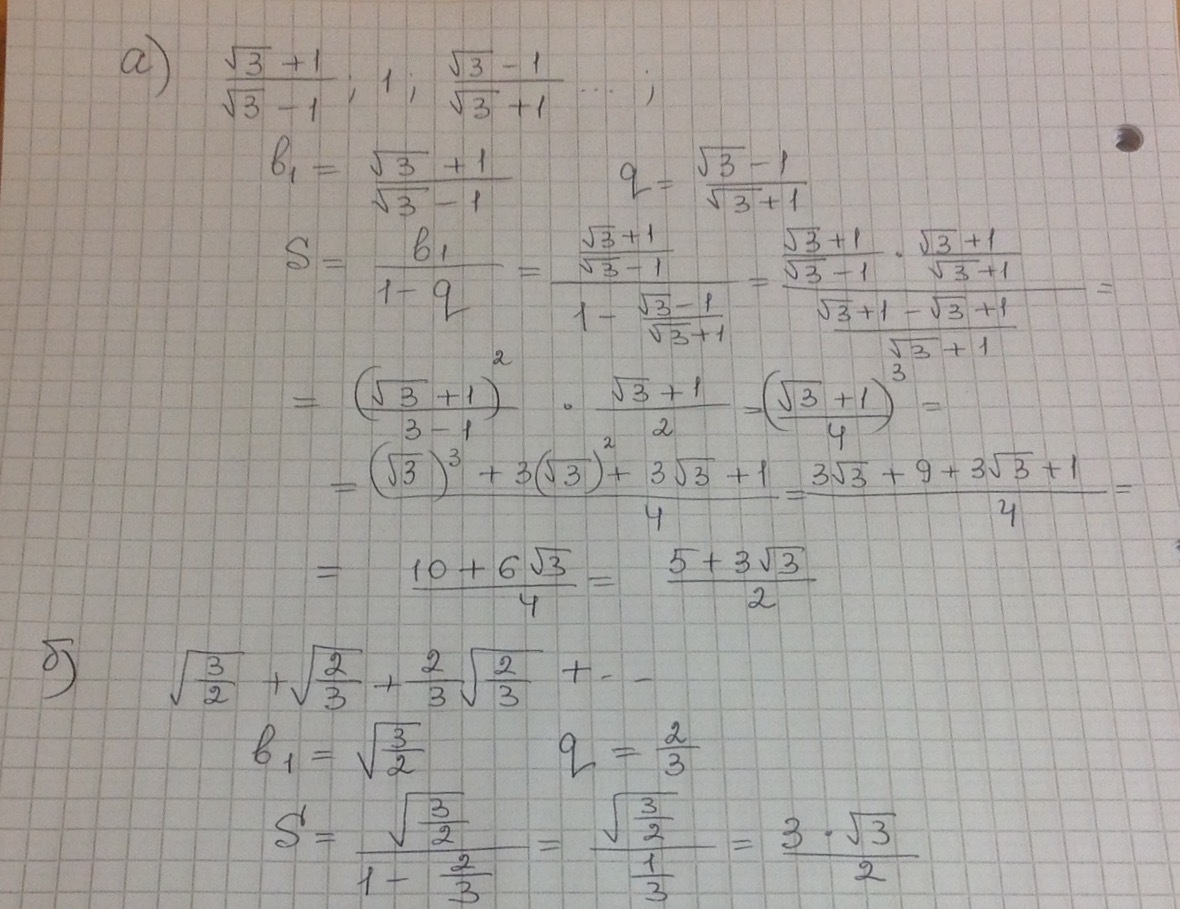 а) (√3 + 1)/(√3 - 1); 1; (√3 - 1)/(√3 + 1) ... ;
b₁ = (√3 + 1)/(√3 - 1) q = (√3 - 1)/(√3 + 1)
S = b₁/(1 - q) = ((√3 + 1)/(√3 - 1))/(1 - (√3 - 1)/(√3 + 1)) = ((√3 + 1)/(√3 - 1) · (√3 + 1)/(√3 + 1))/((√3 + 1 - √3 + 1)/(√3 + 1)) =
= (√3 + 1)²/(3 - 1) · (√3 + 1)/2 = (√3 + 1)³/4 =
= ((√3)³ + 3(√3)² + 3√3 + 1)/4 = (3√3 + 9 + 3√3 + 1)/4 =
= (10 + 6√3)/4 = (5 + 3√3)/2
б) √(3/2) + √(2/3) + 2/3 √(2/3) + - -
b₁ = √(3/2) q = 2/3
S = √(3/2)/(1 - 2/3) = √(3/2)/(1/3) = (3 · √3)/2